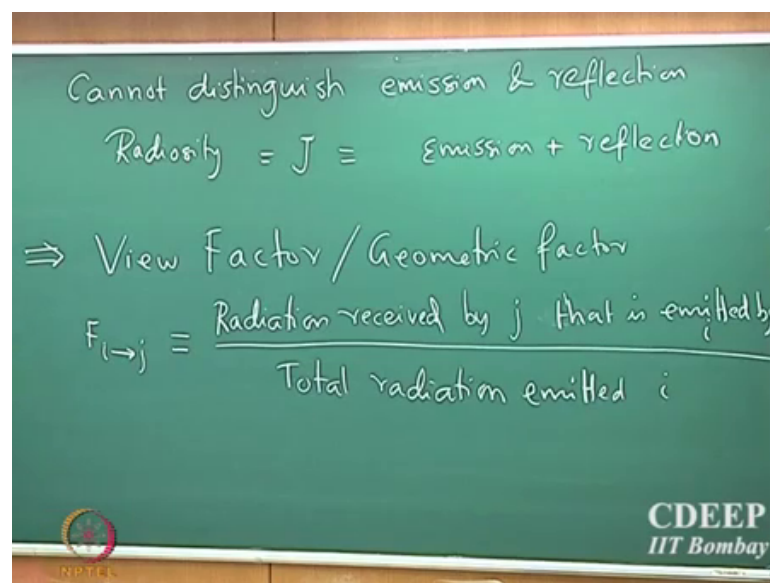 Cannot distinguish emission & reflection
Radiosity = J ≡ Emission + reflection
⇒ View Factor / Geometric factor
F i→j ≡ Radiation received by j that is emitted by i
Total radiation emitted i
NPTEL
CDEEP
IIT Bombay